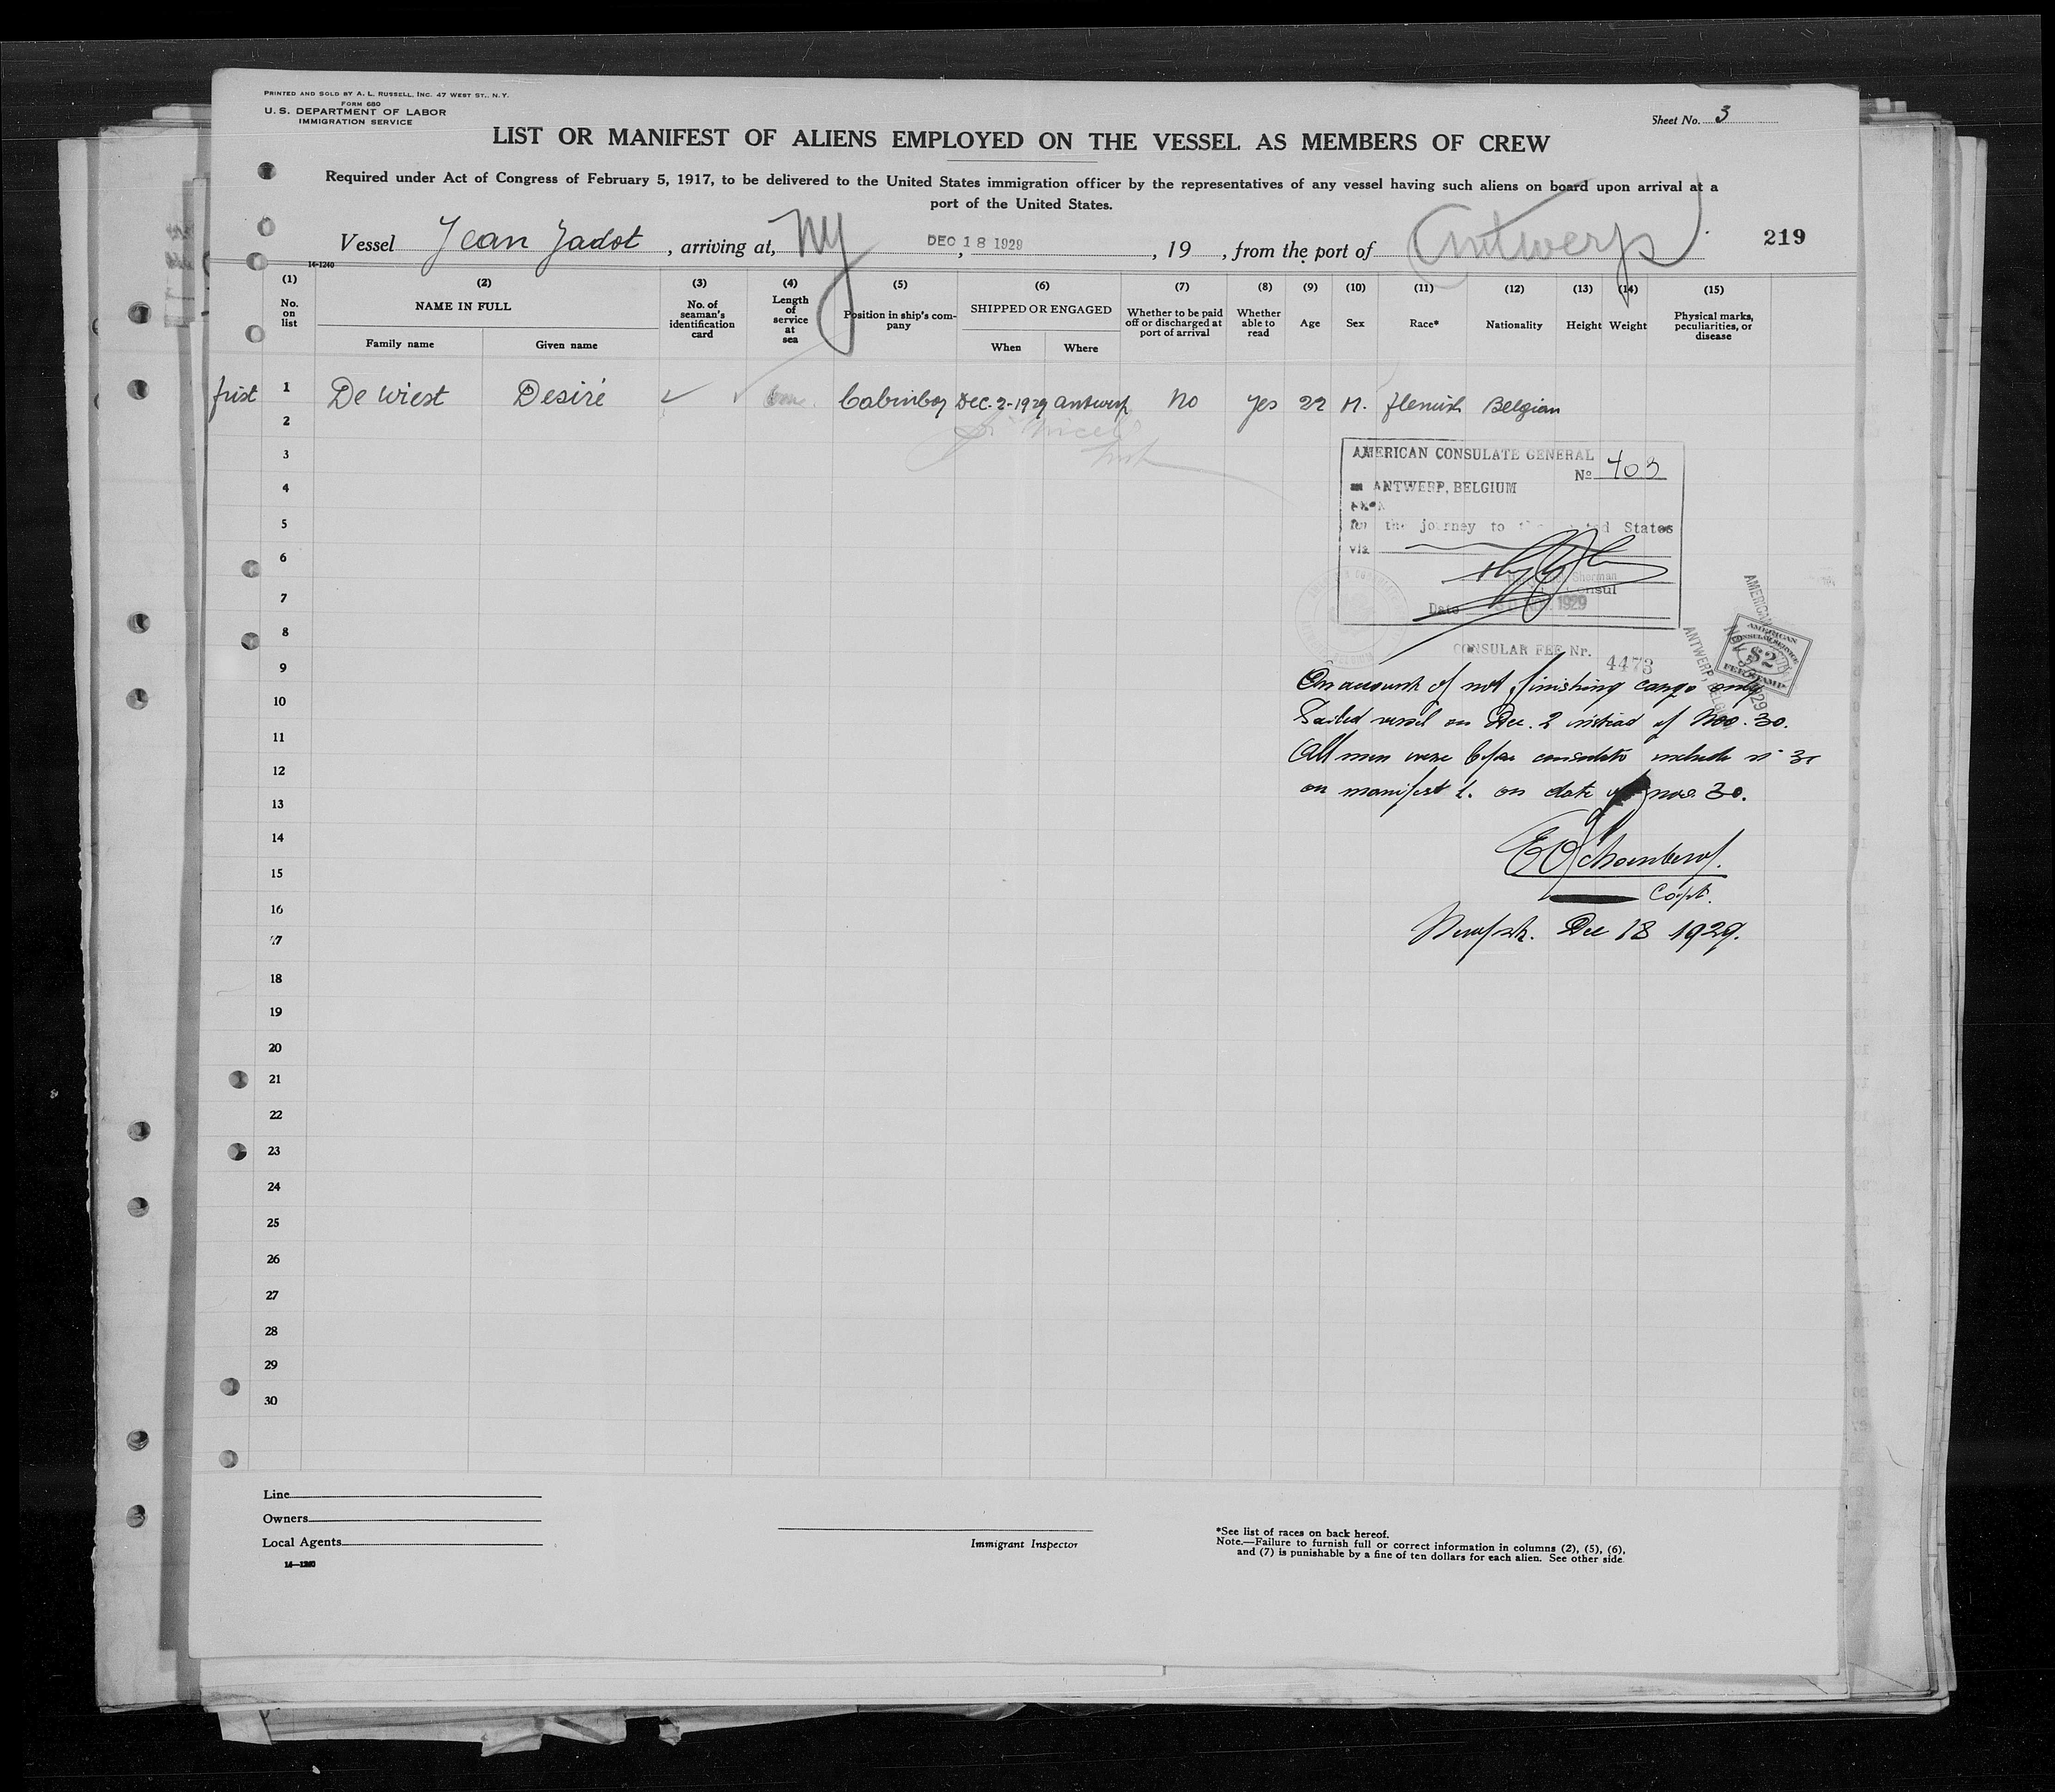 PRINTED AND SOLD BY A. L. RUSSELL, INC. 47 WEST ST., N. Y.
FORM 680
U. S. DEPARTMENT OF LABOR
IMMIGRATION SERVICE
Sheet No. 3
LIST OR MANIFEST OF ALIENS EMPLOYED ON THE VESSEL AS MEMBERS OF CREW
Required under Act of Congress of February 5, 1917, to be delivered to the United States immigration officer by the representatives of any vessel having such aliens on board upon arrival at a
port of the United States.
Vessel Jean Jadot, arriving at, NY, DEC 18 1929, 19, from the port of Antwerp
219
14-1240
(1) (2) (3) (4) (5) (6) (7) (8) (9) (10) (11) (12) (13) (14) (15)
No. on list
NAME IN FULL
Family name
Given name
No. of seaman's identification card
Length of service at sea
Position in ship's company
SHIPPED OR ENGAGED
When
Where
Whether to be paid off or discharged at port of arrival
Whether able to read
Age
Sex
Race*
Nationality
Height
Weight
Physical marks, peculiarities, or disease
first 1 De Wiest Desiré Cabinboy Dec-2-1929 Antwerp No Yes 22 M. Flemish Belgian
2
3
4
5
6
7
8
9
10
11
12
13
14
15
16
17
18
19
20
21
22
23
24
25
26
27
28
29
30
AMERICAN CONSULATE GENERAL
No 403
ANTWERP, BELGIUM
the journey to States
via
Sherman
Consul
Date 1929
CONSULAR FEE Nr. 4473
AMERICAN
$2
FEE STAMP
ANTWERP,
On account of not finishing cargo only
Sailed vessel on Dec. 2 instead of Nov. 30.
All men were before consulate
on manifest 1. on date of nov. 30.
Capt.
Newyork. Dec 18 1929.
Line
Owners
Local Agents
14—1240
Immigrant Inspector
*See list of races on back hereof.
Note.—Failure to furnish full or correct information in columns (2), (5), (6),
and (7) is punishable by a fine of ten dollars for each alien. See other side